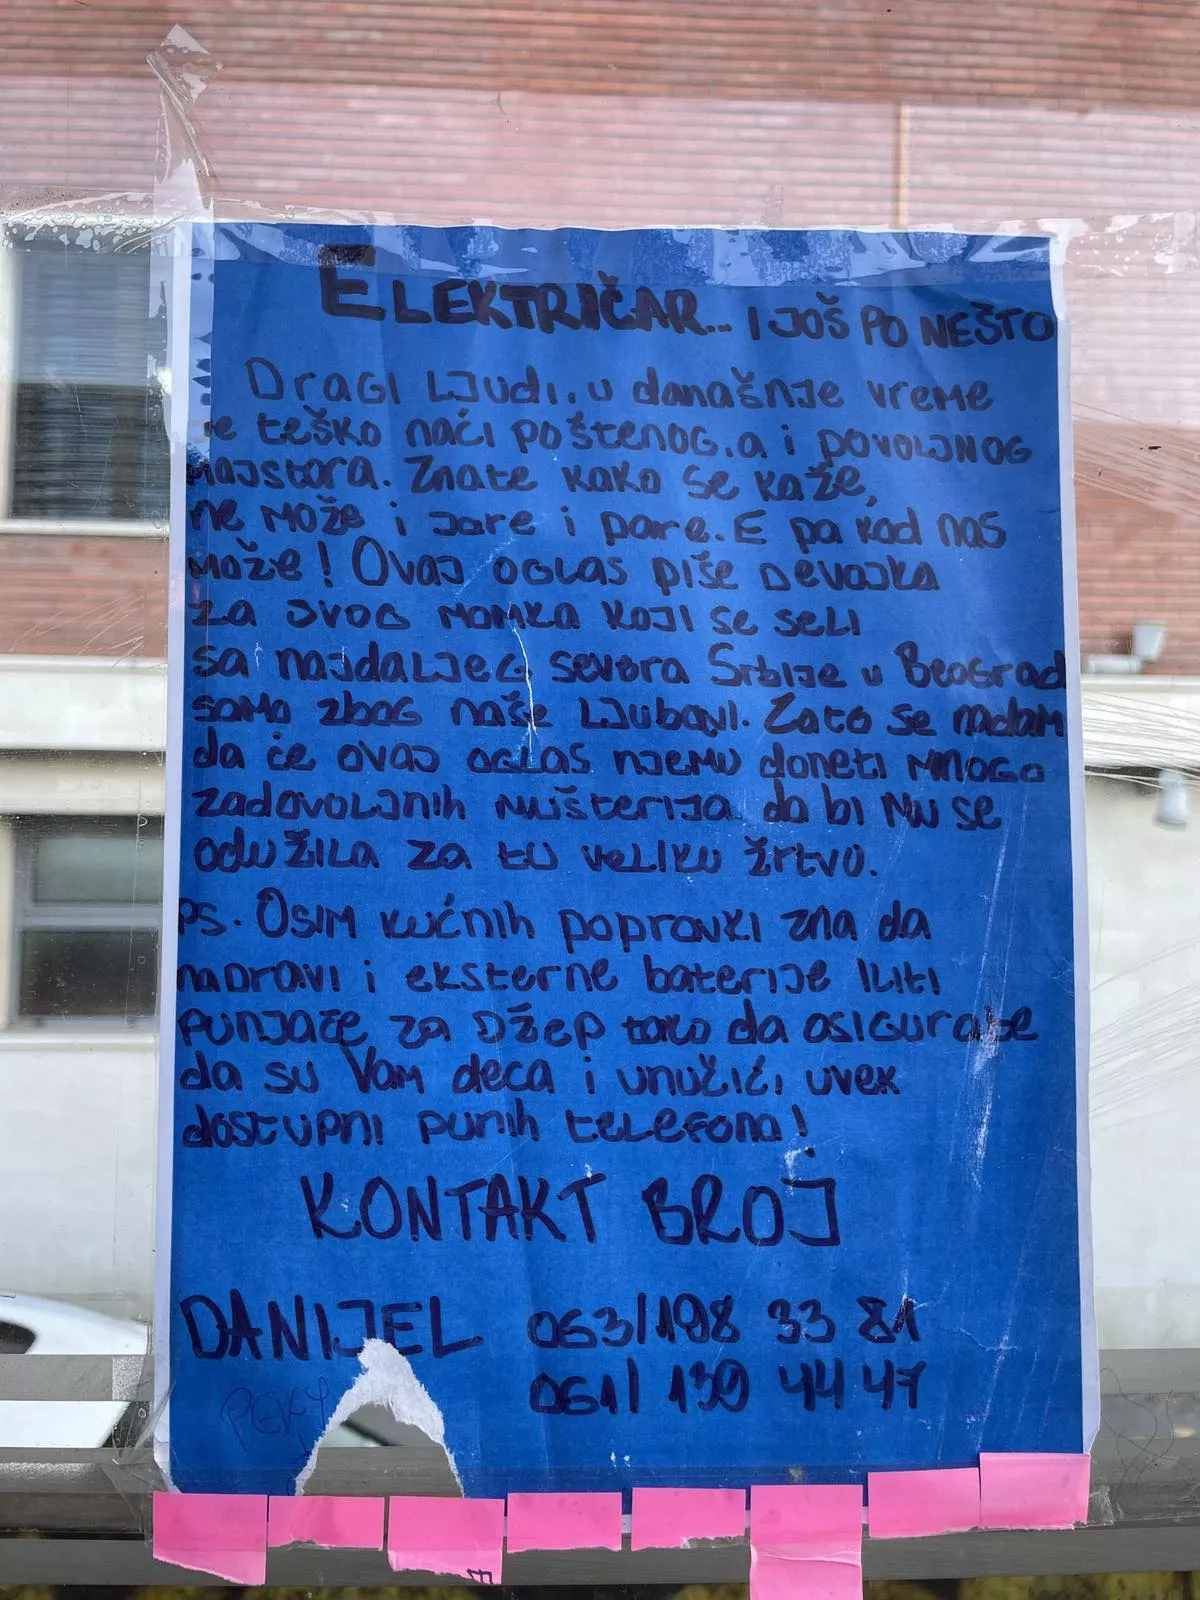 ELEKTRIČAR.. I JOŠ PO NEŠTO
Dragi ljudi, u današnje vreme
je teško naći poštenog, a i povoljnog
majstora. Znate kako se kaže,
ne može i jare i pare. E pa kod nas
može! Ovaj oglas piše devojka
za svog momka koji se seli
sa najdaljeg severa Srbije u Beograd
samo zbog naše ljubavi. Zato se nadam
da će ovaj oglas njemu doneti mnogo
zadovoljnih mušterija da bi mu se
odužila za tu veliku žrtvu.
PS. Osim kućnih popravki zna da
napravi i eksterne baterije iliti
punjače za džep tako da osigurate
da su Vam deca i unučići uvek
dostupni punih telefona!
KONTAKT BROJ
DANIJEL 063/198 33 81
061/139 44 47